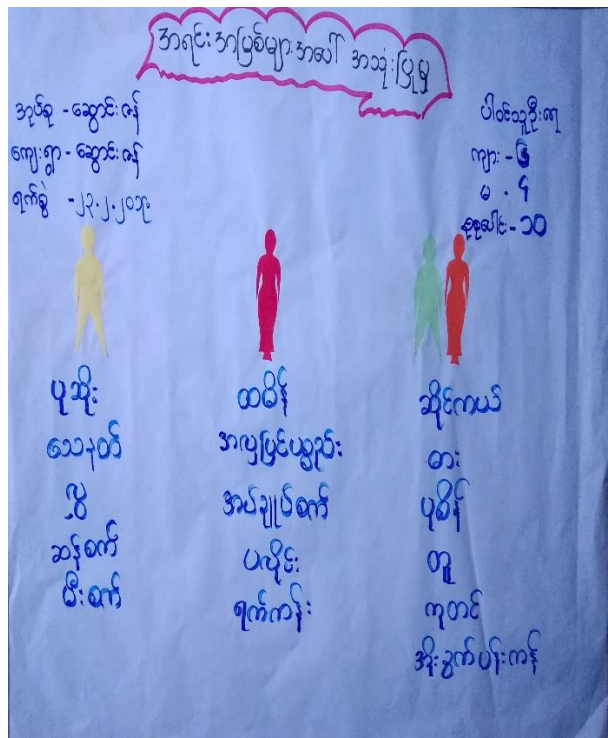 အရင်းအမြစ်များအပေါ် အသုံးပြုမှု
အုပ်စု - ဆွောင်းဇန်
ကျေးရွာ - ဆွောင်းဇန်
ရက်စွဲ - ၂၃.၂.၂၀၁၃
ပါဝင်သူဦးရေ
ကျား - ၆
မ - ၄
စုစုပေါင်း - ၁၀
ပုဆိုး
သေနတ်
လွှ
ဆန်စက်
မီးစက်
ထမိန်
အလှပြင်ပစ္စည်း
အပ်ချုပ်စက်
ပလိုင်း
ရက်ကန်း
ဆိုင်ကယ်
ဓား
ပုစိန်
တူ
ကုတင်
အိုးခွက်ပန်းကန်